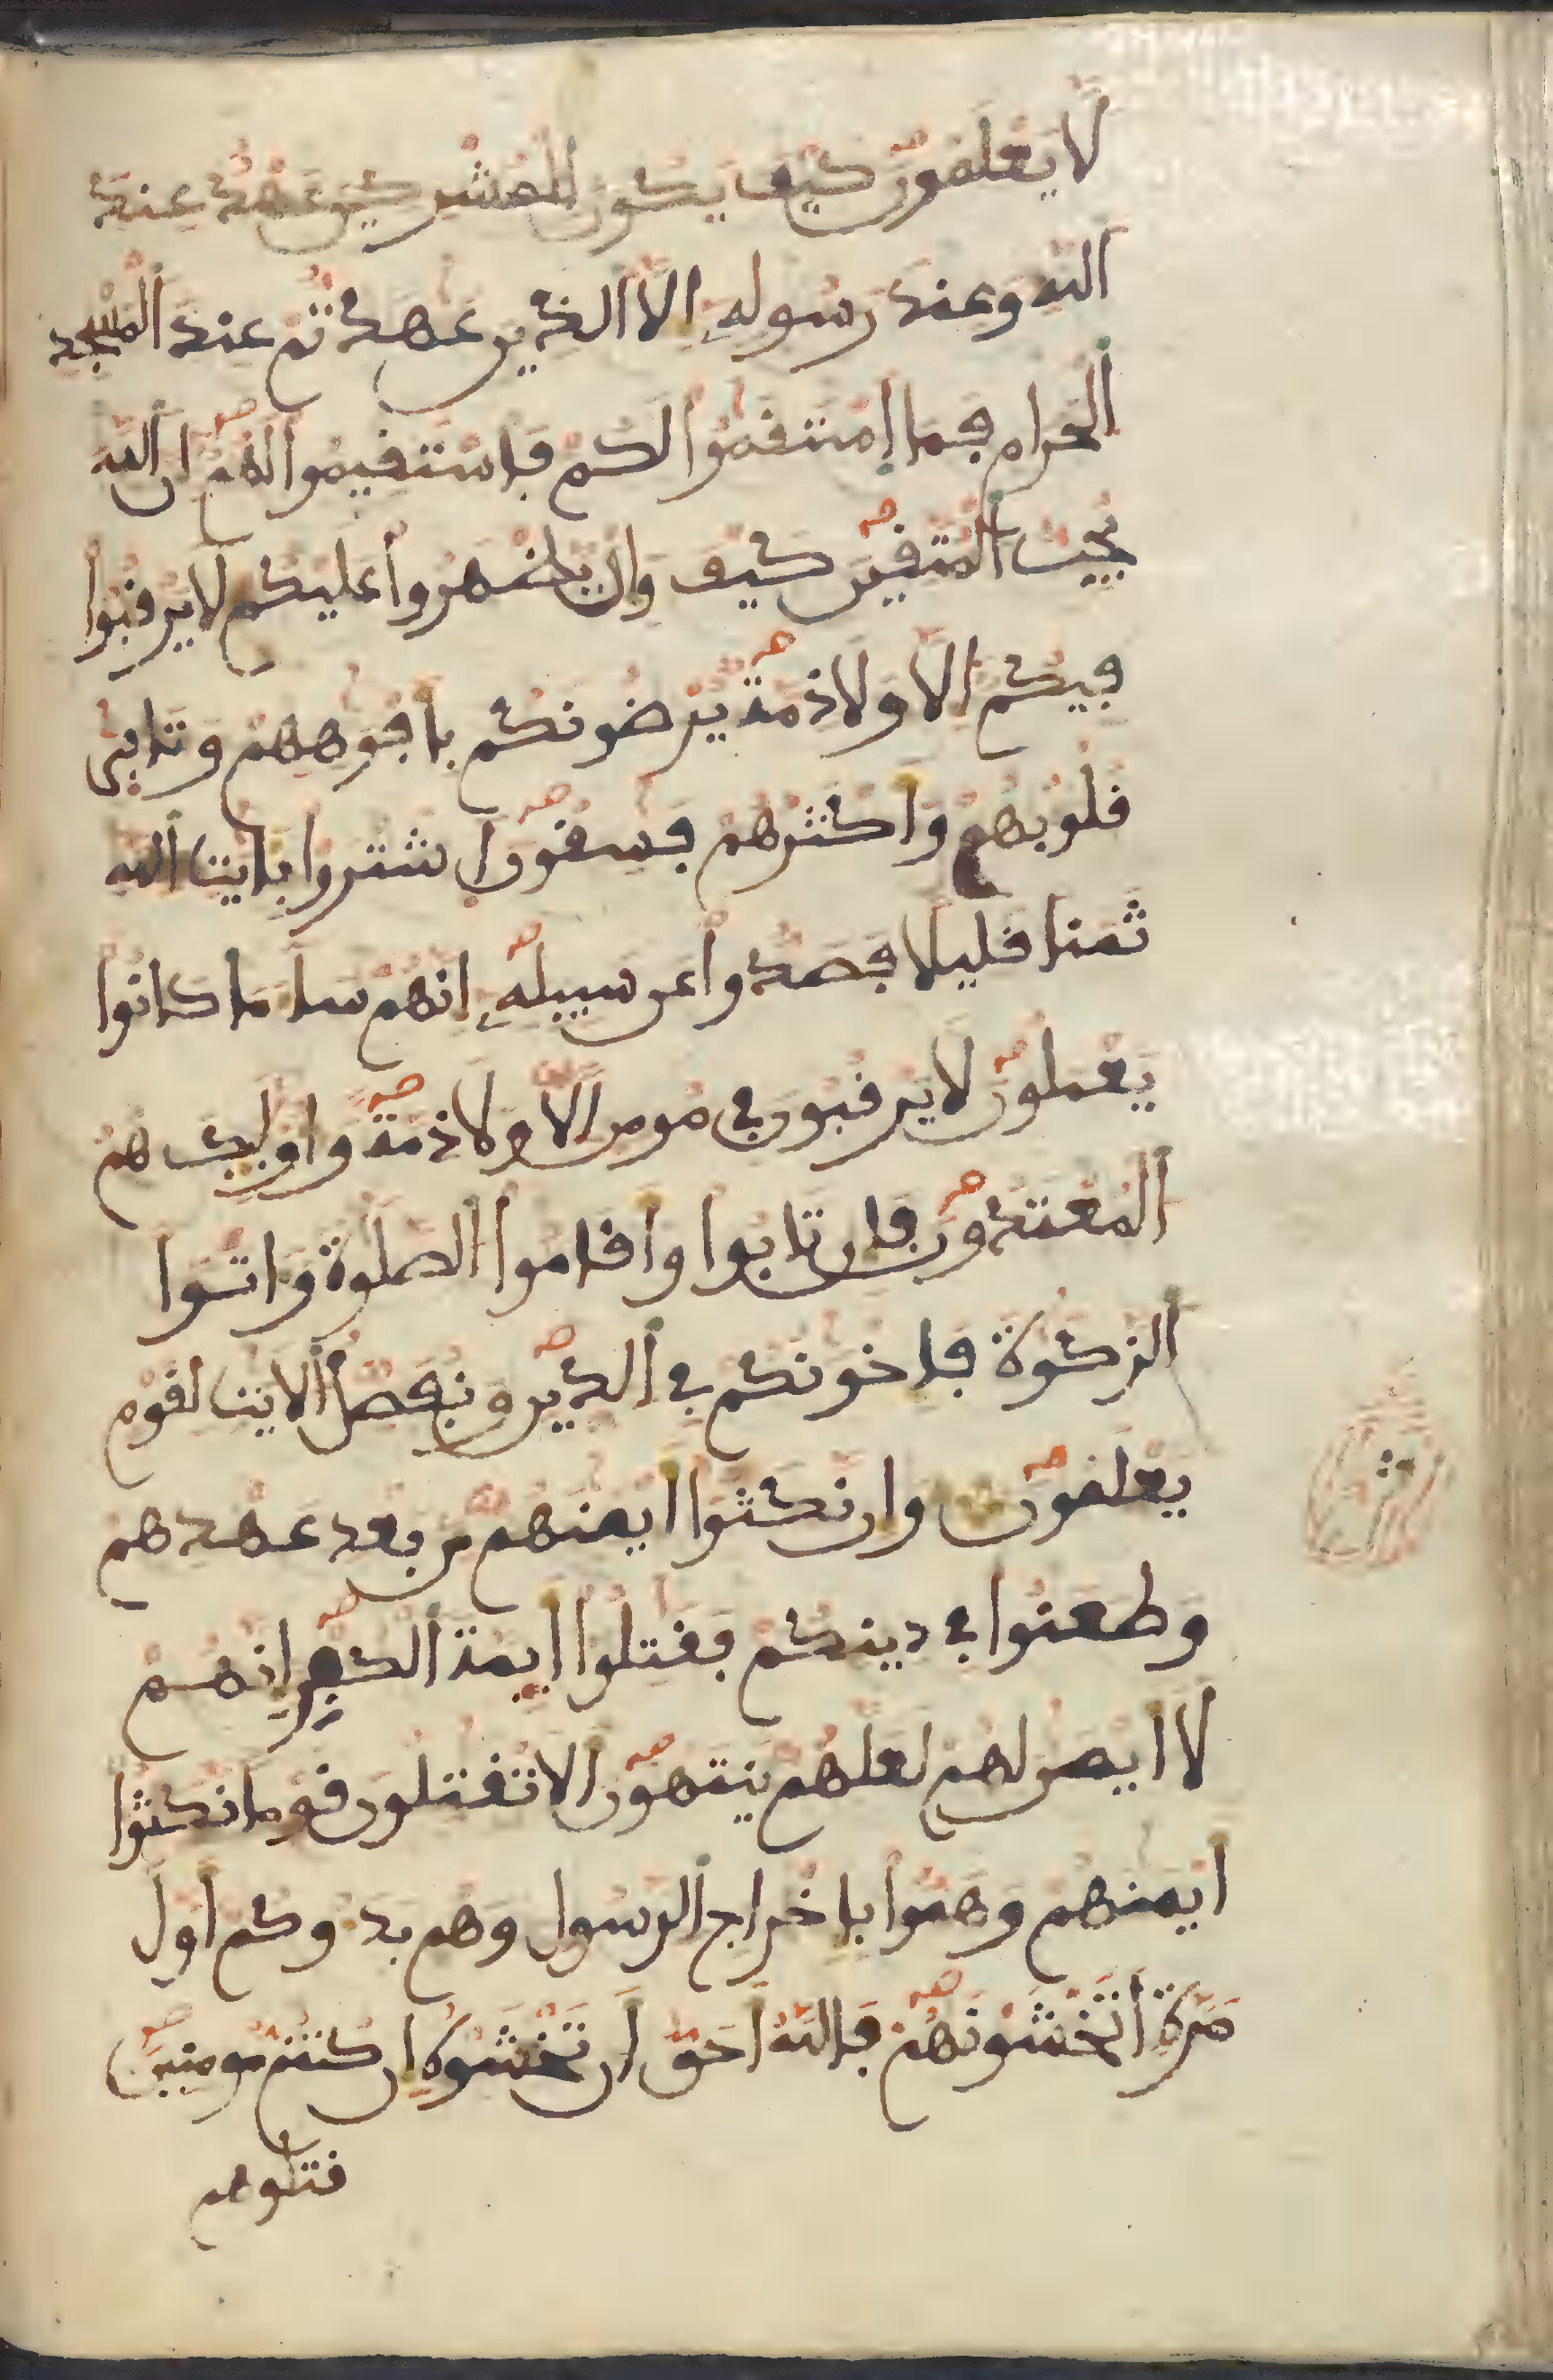 لا يعلمون كيف يكون للمشركين عهد عند
الله وعند رسوله الا الذين عهدتم عند المسجد
الحرام فما استقموا لكم فاستقيموا لهم ان الله
يحب المتقين كيف وان يظهروا عليكم لا يرقبوا
فيكم الا ولا ذمة يرضونكم بافوههم وتابى
قلوبهم واكثرهم فسقون اشتروا بايت الله
ثمنا قليلا فصدوا عن سبيله انهم سا ما كانوا
يعملون لا يرقبون في مومن الا ولا ذمة واوليك هم
المعتدون فان تابوا واقاموا الصلوة واتوا
الزكوة فاخونكم في الدين ونفصل الايت لقوم
يعلمون وان نكثوا ايمنهم من بعد عهدهم
وطعنوا في دينكم فقتلوا ايمة الكفر انهم
لا ايمن لهم لعلهم ينتهون الا تقتلون قوما نكثوا
ايمنهم وهموا باخراج الرسول وهم بدوكم اول
مرة اتخشونهم فالله احق ان تخشوه ان كنتم مومنين
قتلوهم